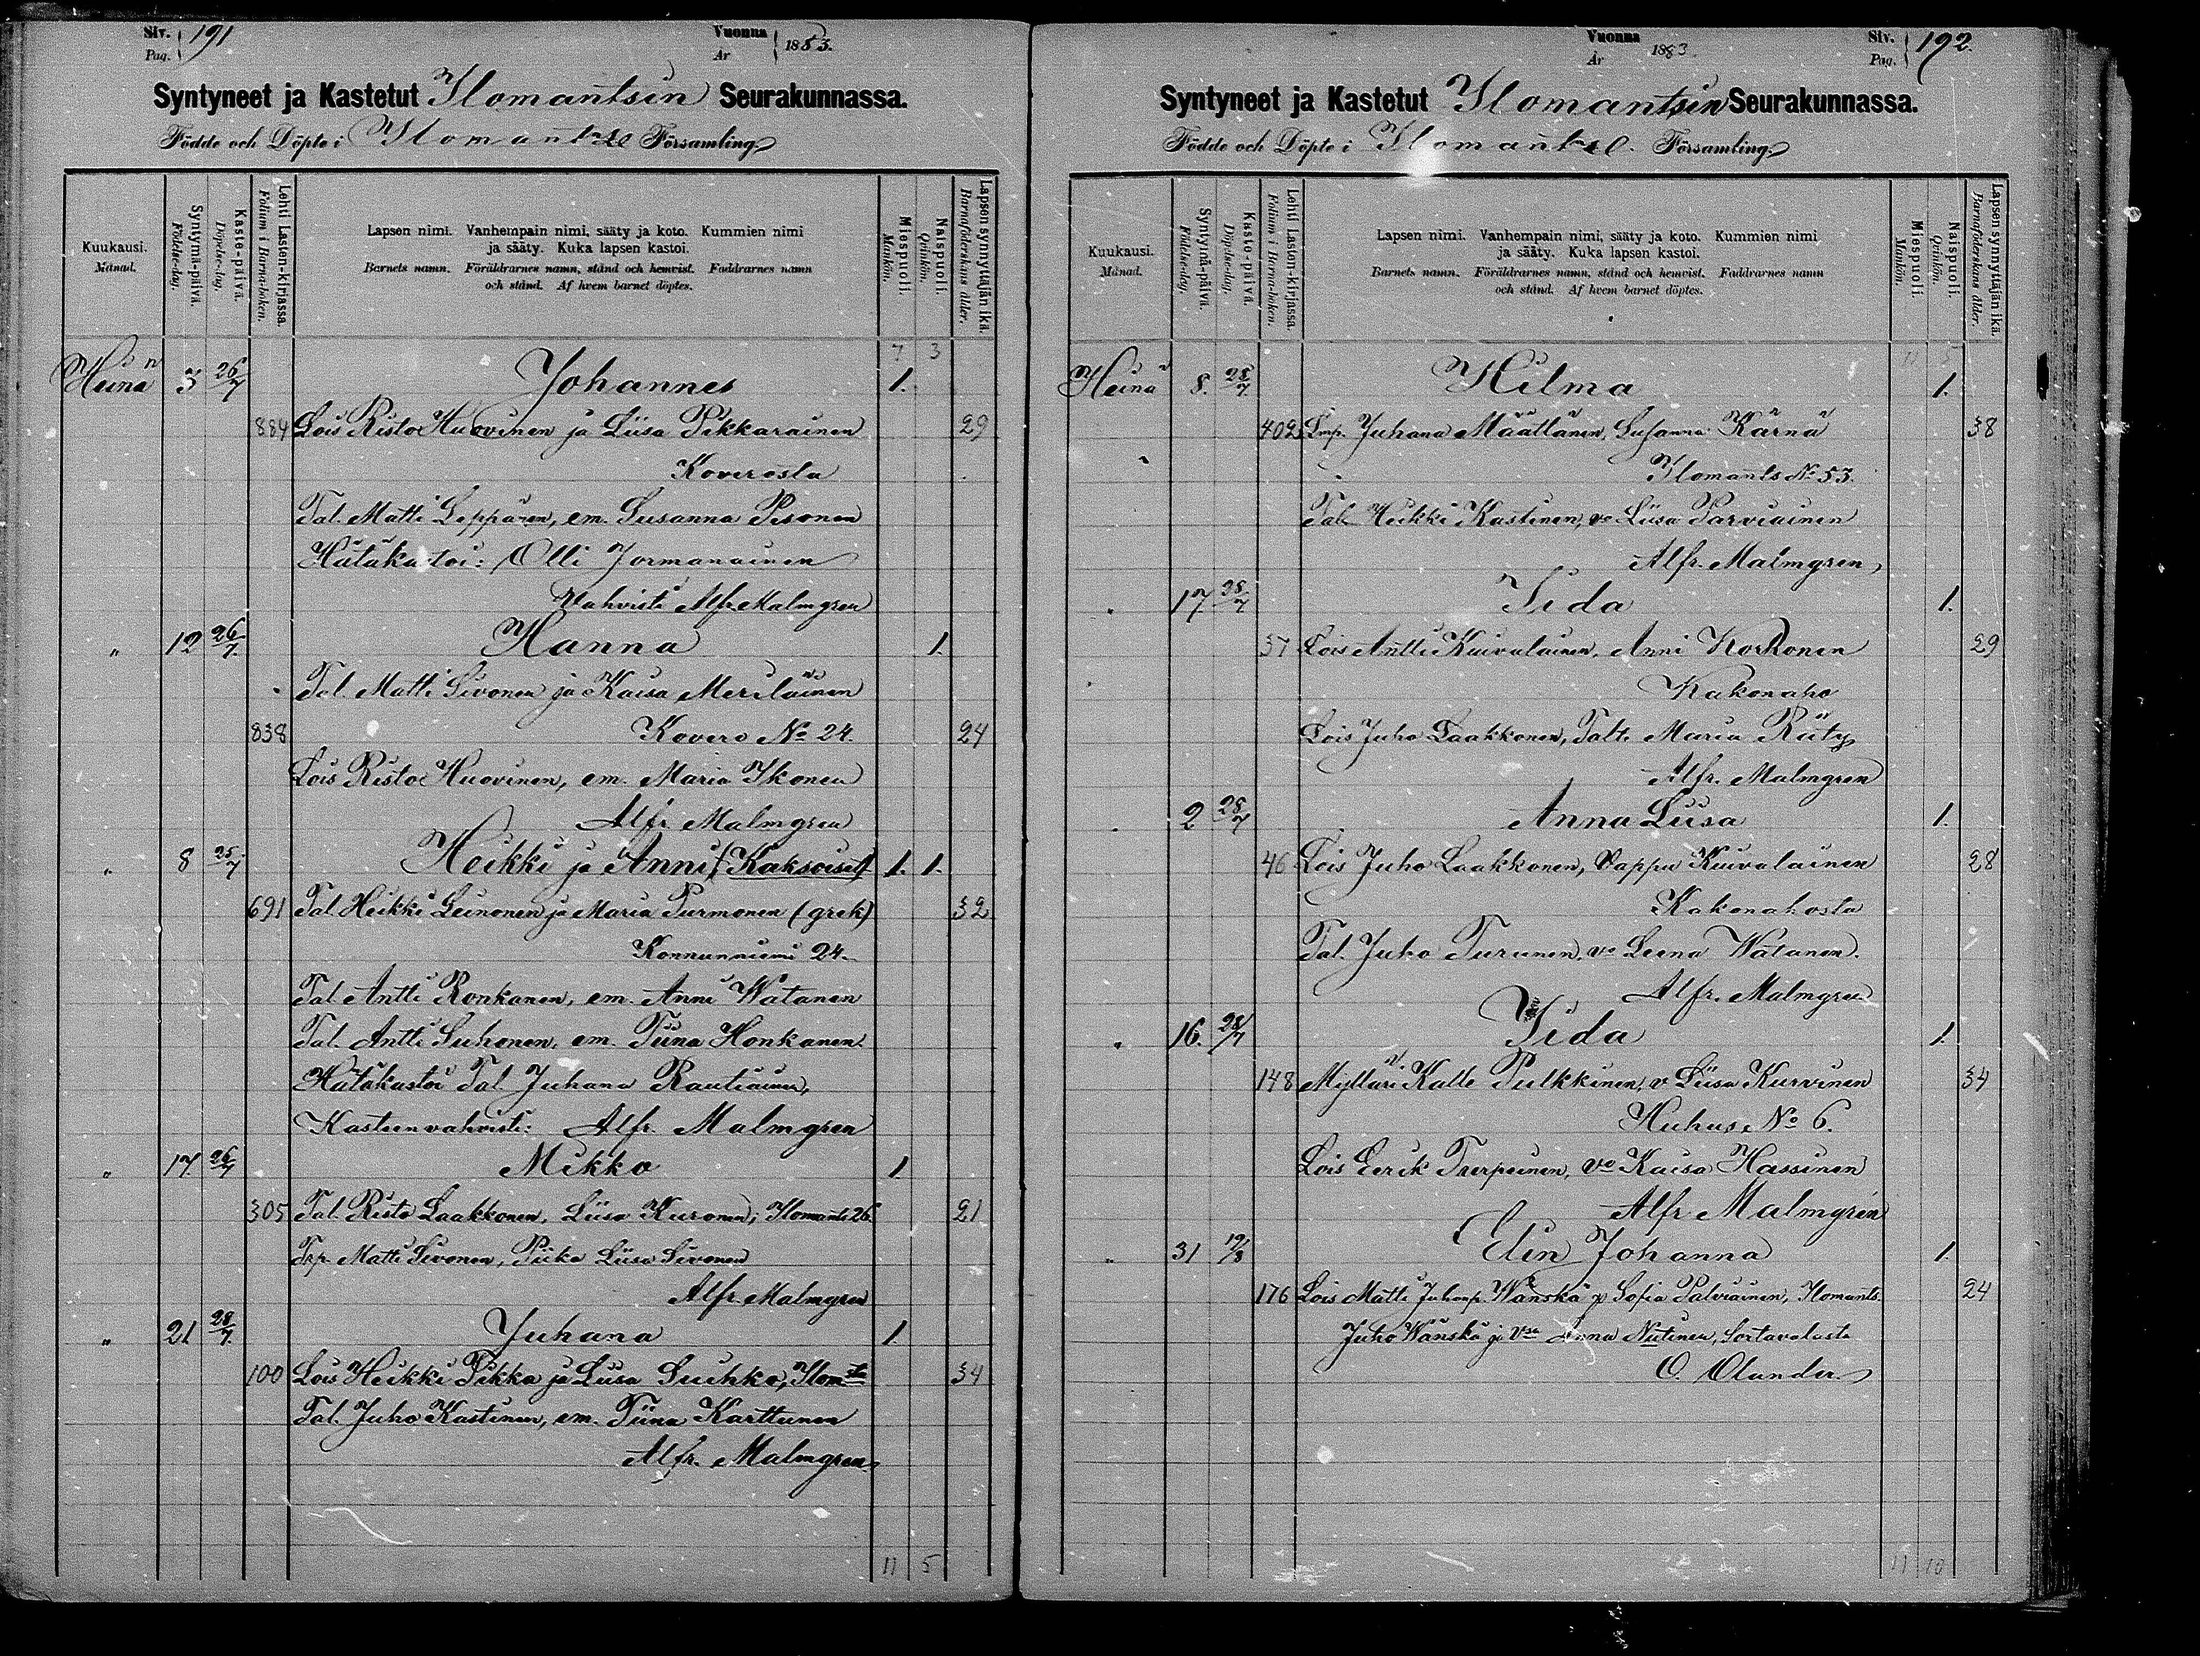 Siv. Pag. 191 Vuonna År 1883.
Syntyneet ja Kastetut Ilomantsin Seurakunnassa.
Födde och Döpte i Ilomants Församling
Kuukausi. Månad.
Syntymä-päivä. Födelse-dag.
Kaste-päivä. Döpelse-dag.
Lehti Lasten-kirjassa. Folium i Barna-boken.
Lapsen nimi. Vanhempain nimi, sääty ja koto. Kummien nimi
ja sääty. Kuka lapsen kastoi.
Barnets namn. Föräldrarnes namn, stånd och hemvist. Faddrarnes namn
och stånd. Af hvem barnet döptes.
Miespuoli. Mankön.
Naispuoli. Qvinkön.
Lapsen synnyttäjän ikä. Barnaföderskans ålder.
7 3
Heinä 3 26/7 Johannes 1.
884 Lois Risto Huovinen ja Liisa Pikkarainen 29
Koverosta
Tal. Matti Leppänen, em. Susanna Pesonen
Hätäkastoi: Olli Jormanainen
Vahvisti Alfr. Malmgren
" 12 26/7. Hanna 1.
Tal. Matti Sivonen ja Kaisa Meriläinen
838 Kovero No 24. 24
Lois Risto Huovinen, em. Maria Ikonen
Alfr. Malmgren
" 8 25/7 Heikki ja Anni (Kaksoiset) 1. 1.
691 Tal. Heikki Leinonen ja Maria Purmonen (grek) 32
Konnunniemi 24.
Tal. Antti Ronkanen, em. Anni Watanen
Tal. Antti Suhonen, em. Tiina Honkanen.
Hätäkastoi Tal. Juhana Rautiainen,
Kasteen vahvisti: Alfr. Malmgren
" 17. 26/7 Mikko 1.
305 Tal. Risto Laakkonen, Liisa Kuronen; Ilomants 26. 21
Trp. Matti Sivonen, Piika Liisa Sivonen
Alfr. Malmgren
" 21 28/7. Juhana 1.
100 Lois Heikki Tikka ja Liisa Suihko, Ilom 34
Tal. Juho Kastinen, em. Tiina Karttunen
Alfr. Malmgren
11 5
Vuonna År 1883 Siv. Pag. 192.
Syntyneet ja Kastetut Ilomantsin Seurakunnassa.
Födde och Döpte i Ilomants Församling.
Kuukausi. Månad.
Syntymä-päivä. Födelse-dag.
Kaste-päivä. Döpelse-dag.
Lehti Lasten-kirjassa. Folium i Barna-boken.
Lapsen nimi. Vanhempain nimi, sääty ja koto. Kummien nimi
ja sääty. Kuka lapsen kastoi.
Barnets namn. Föräldrarnes namn, stånd och hemvist. Faddrarnes namn
och stånd. Af hvem barnet döptes.
Miespuoli. Mankön.
Naispuoli. Qvinkön.
Lapsen synnyttäjän ikä. Barnaföderskans ålder.
11 5
Heinä 8. 28/7. Hilma 1.
402 Juhana Määttänen, Susanna Kärnä 38
Ilomants No 53.
Tal. Heikki Kastinen, vo Liisa Parviainen
Alfr. Malmgren
" 17 28/7 Iida 1.
37 Lois Antti Kuivalainen, Anni Korhonen 29
Kakonaho
Lois Juho Laakkonen, Talt. Maria Räty
Alfr. Malmgren
" 2 28/7 Anna Liisa 1.
46 Lois Juho Laakkonen, Vappu Kuivalainen 28
Kakonahosta
Tal. Juho Turunen, vo Leena Watanen.
Alfr. Malmgren
" 16. 28/7 Iida 1.
148 Mylläri Kalle Pulkkinen, v Liisa Kurvinen 34
Huhus No 6.
Lois Eerik Turpeinen, vo Kaisa Hassinen
Alfr Malmgren
" 31 19/8 Elin Johanna 1.
176 Lois Matti Juhonp. Wänskä ja Sofia Palviainen, Ilomants. 24
Juho Wänskä ja Anna Nutinen, Sortavalasta
O. Olander.
11 10